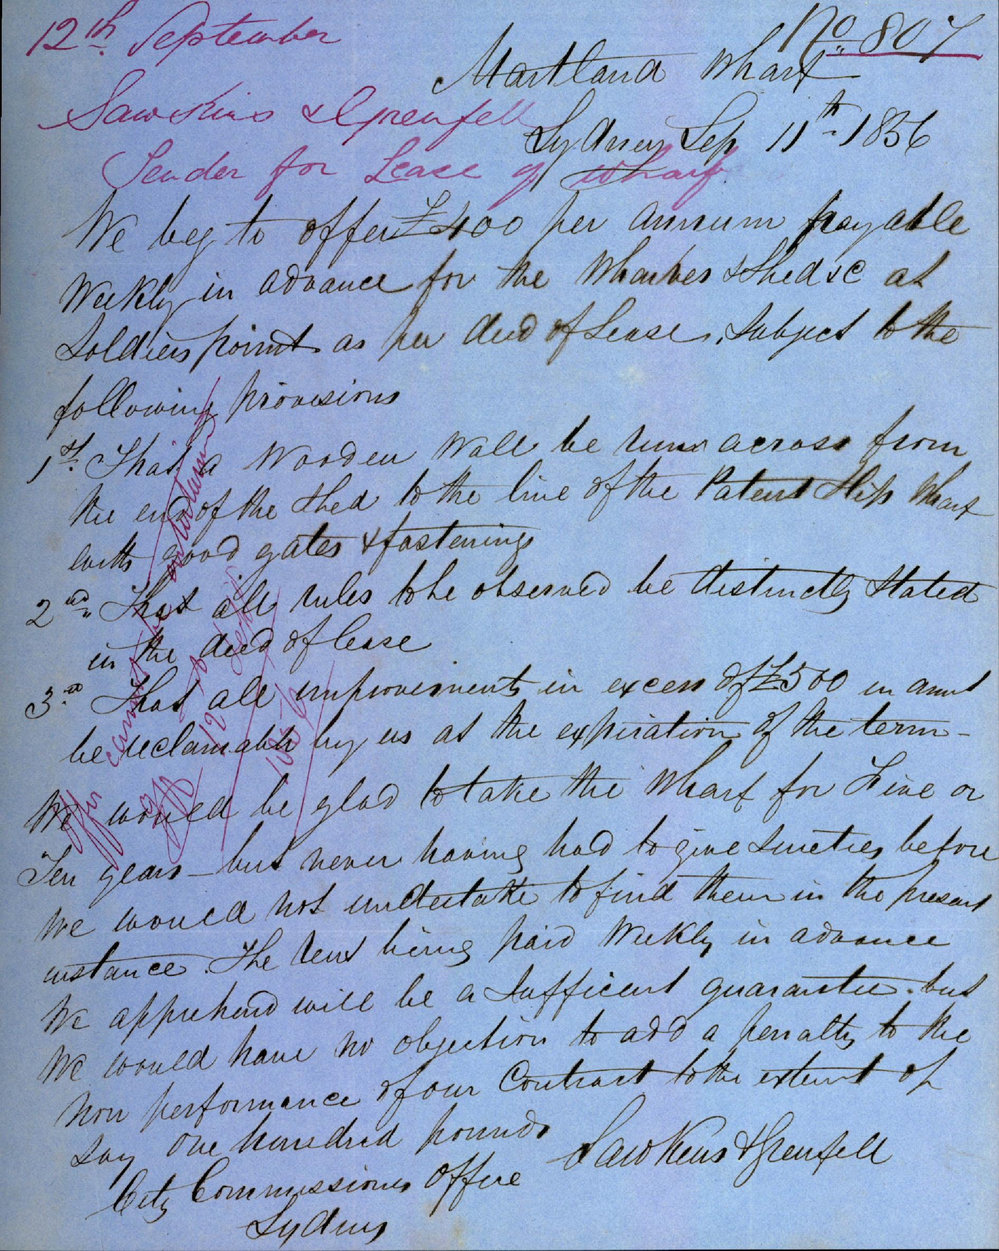 12th September
No 807
Maitland Wharf
Sawkins & Grenfell
Sydney Sep 11th 1856
Tender for Lease of Wharf
We beg to offer £400 per annum payable
Weekly in advance for the Wharves & Shed &c at
Soldiers point as per deed of Lease, Subject to the
following provisions
1st That a Wooden Wall be run across from
the end of the Shed to the line of the Patent Slip Wharf
with good gates & fastenings
2nd That all rules to be observed be distinctly Stated
in the deed of lease
3rd That all improvements in excess of £500 in amt
be reclaimable by us at the expiration of the term -
We would be glad to take the Wharf for Five or
Ten years - but never having had to give Sureties before
We would not undertake to find them in the present
instance. The rent being paid Weekly in advance
We apprehend will be a Sufficient guarantee. but
We would have no objection to add a penalty to the
Non performance of our Contract to the extent of
Say One hundred pounds
Sawkins & Grenfell
City Commissioners Office
Sydney
Offer cannot be entertained
12 Sept
1856